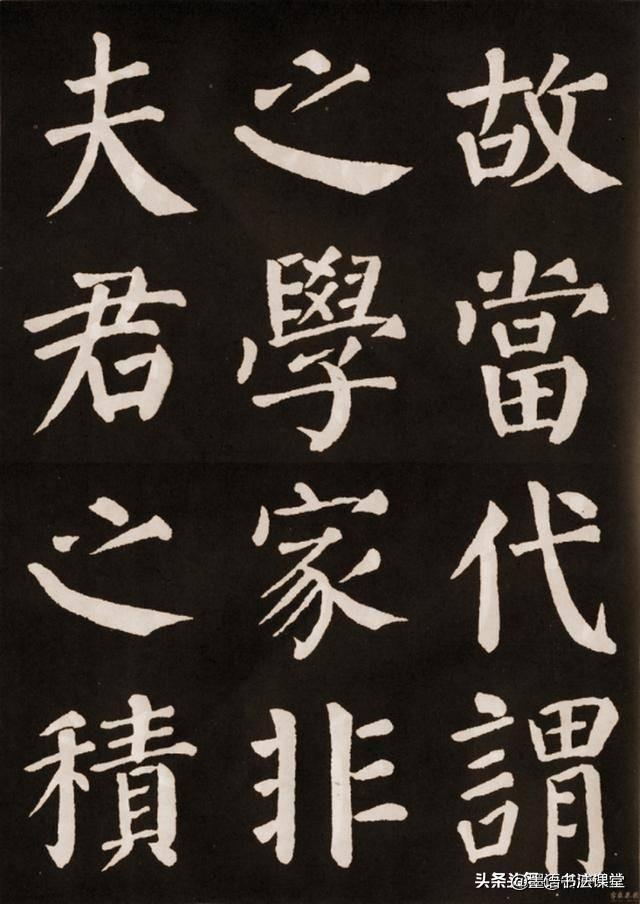 故當代謂
之學家非
夫君之積
头条@墨语书法课堂